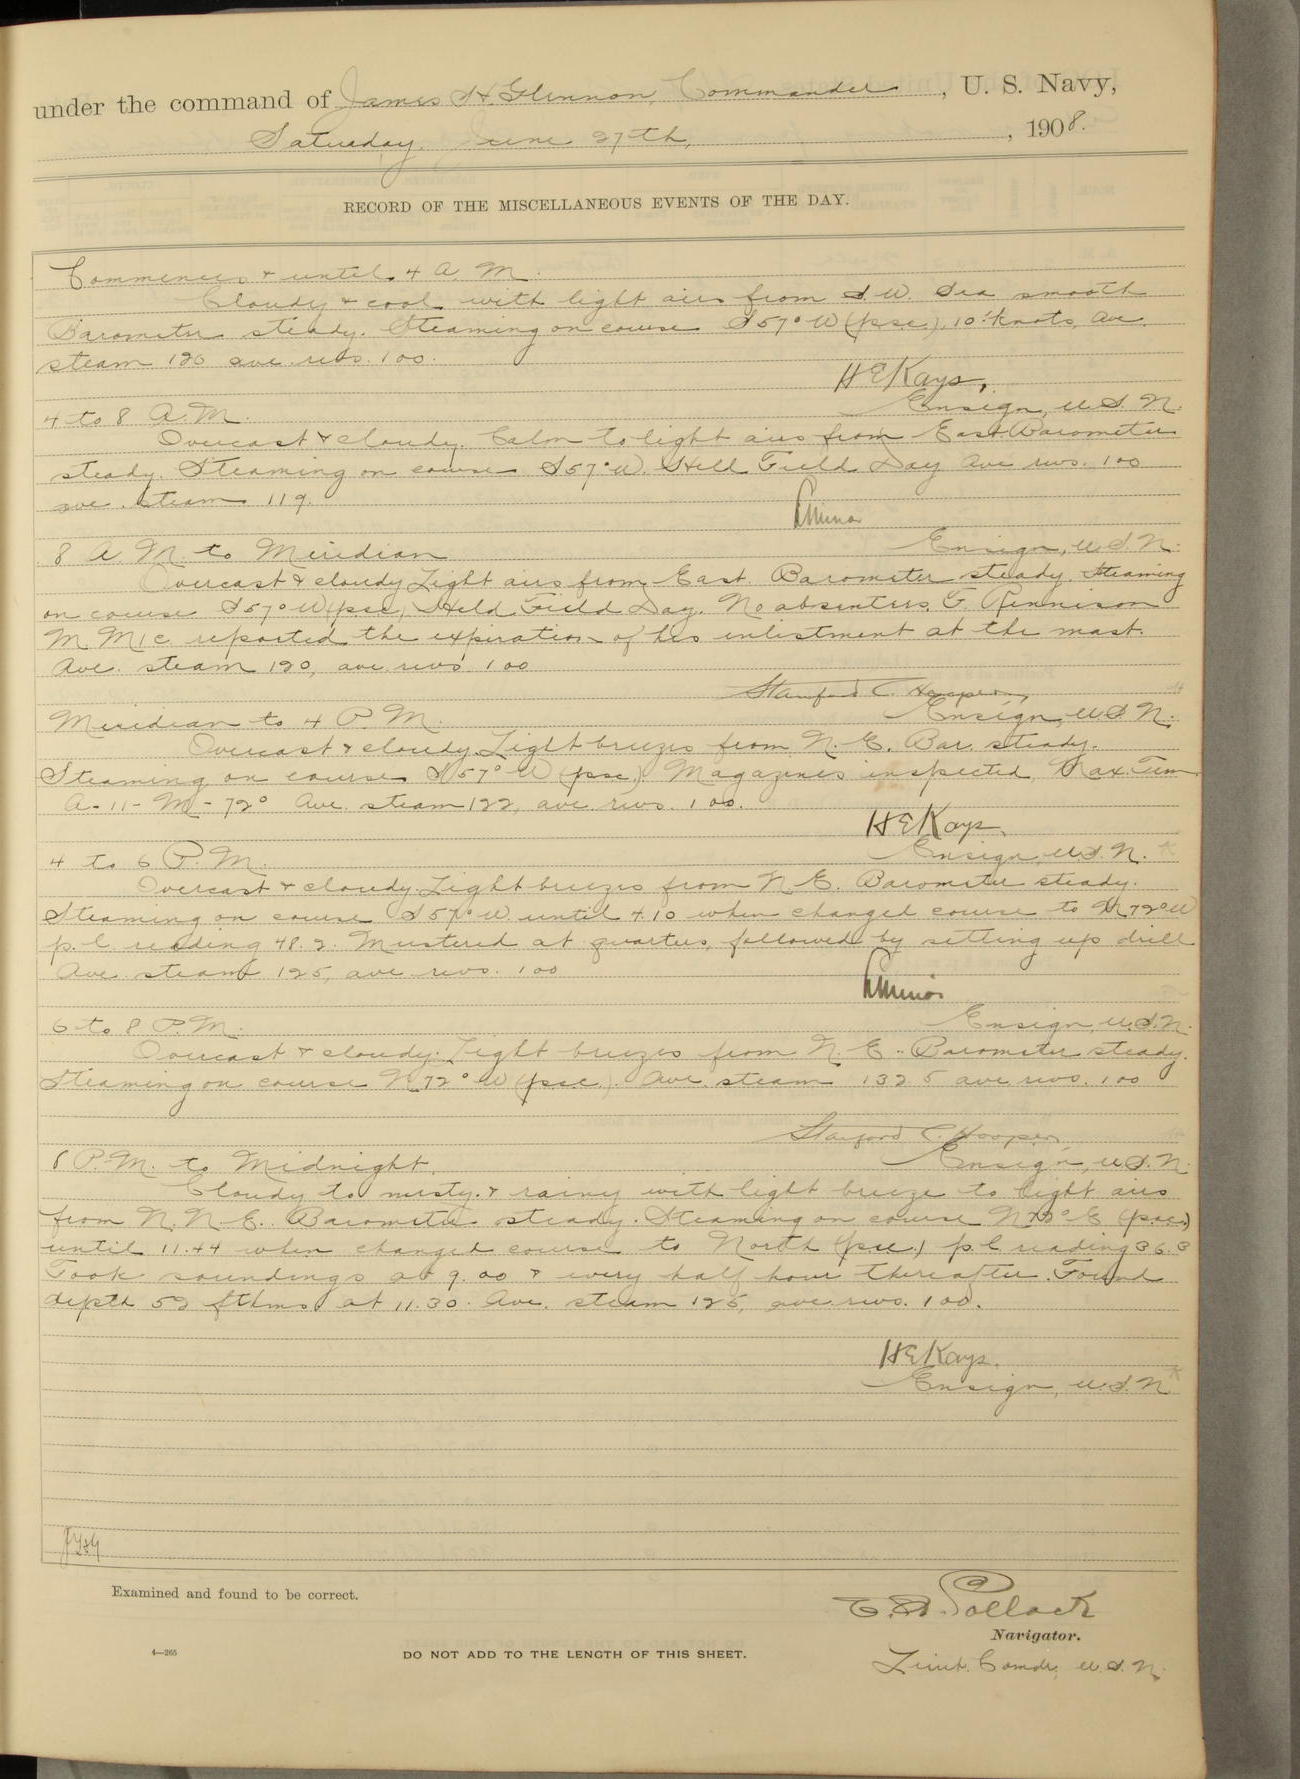 under the command of James H. Glennon, Commander, U. S. Navy,
Saturday, June 27th, , 1908.
RECORD OF THE MISCELLANEOUS EVENTS OF THE DAY.
Commences & until 4 A. M.
Cloudy & cool with light airs from S. W. Sea smooth
Barometer steady. Steaming on course S 57° W (psc), 10 knots, ave.
steam 120 ave. revs. 100.
H E Kays,
Ensign, U.S. N.
4 to 8 A. M.
Overcast & cloudy. Calm to light airs from East Barometer
steady. Steaming on course S 57° W. Held Field Day Ave revs. 100
ave. steam 119.
Ensign, U.S. N.
8 A. M. to Meridian
Overcast & cloudy Light airs from East. Barometer steady. Steaming
on course S 57° W (psc) Held Field Day. No absentees. F. Rennison
M. M 1 c reported the expiration of his enlistment at the mast.
Ave. steam 120, ave. revs 100
Stanford C. Hooper,
Ensign, U.S. N.
Meridian to 4 P. M.
Overcast & cloudy. Light breezes from N. E. Bar. steady.
Steaming on course S 57° W (psc). Magazines inspected, Max. Tem.
A-11-M-72° Ave. steam 122, ave. revs. 100.
H E Kays,
Ensign, U.S. N.
4 to 6 P. M.
Overcast & cloudy. Light breezes from N. E. Barometer steady.
Steaming on course S 57° W. until 4.10 when changed course to N 72° W
p. l. reading 48.2. Mustered at quarters, followed by setting up drill
Ave. steam 125, ave revs. 100
Ensign, U.S. N.
6 to 8 P. M.
Overcast & cloudy. Light breezes from N. E. Barometer steady.
Steaming on course N 72° W (psc). Ave. steam 132.5 ave. revs. 100
Stanford C. Hooper,
Ensign, U.S. N.
8 P. M. to Midnight.
Cloudy to misty & rainy with light breeze to light airs
from N. N. E. Barometer steady. Steaming on course N 72° E (psc.)
until 11.44 when changed course to North (psc.) p. l. reading 36.3
Took soundings at 9.00 & every half hour thereafter. Found
depth 52 fthms at 11.30. Ave. steam 125, ave. revs. 100.
H E Kays.
Ensign, U.S. N.
Examined and found to be correct.
E. A. Pollock
Navigator.
4—265
DO NOT ADD TO THE LENGTH OF THIS SHEET.
Lieut. Comdr, U.S. N.